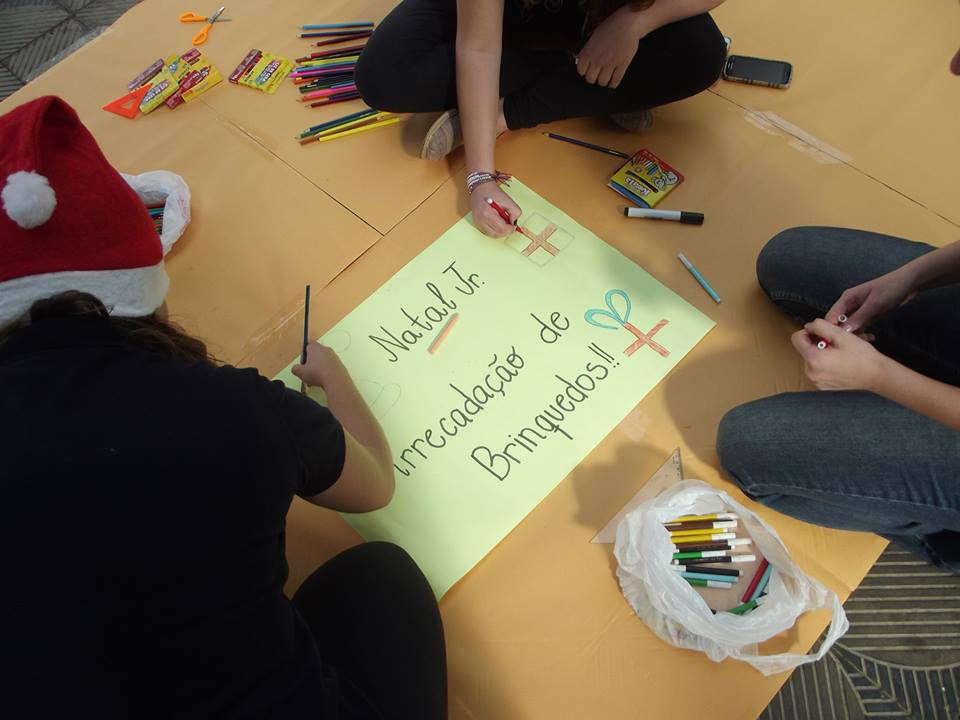 Natal Jr.
Arrecadação de
Brinquedos!!